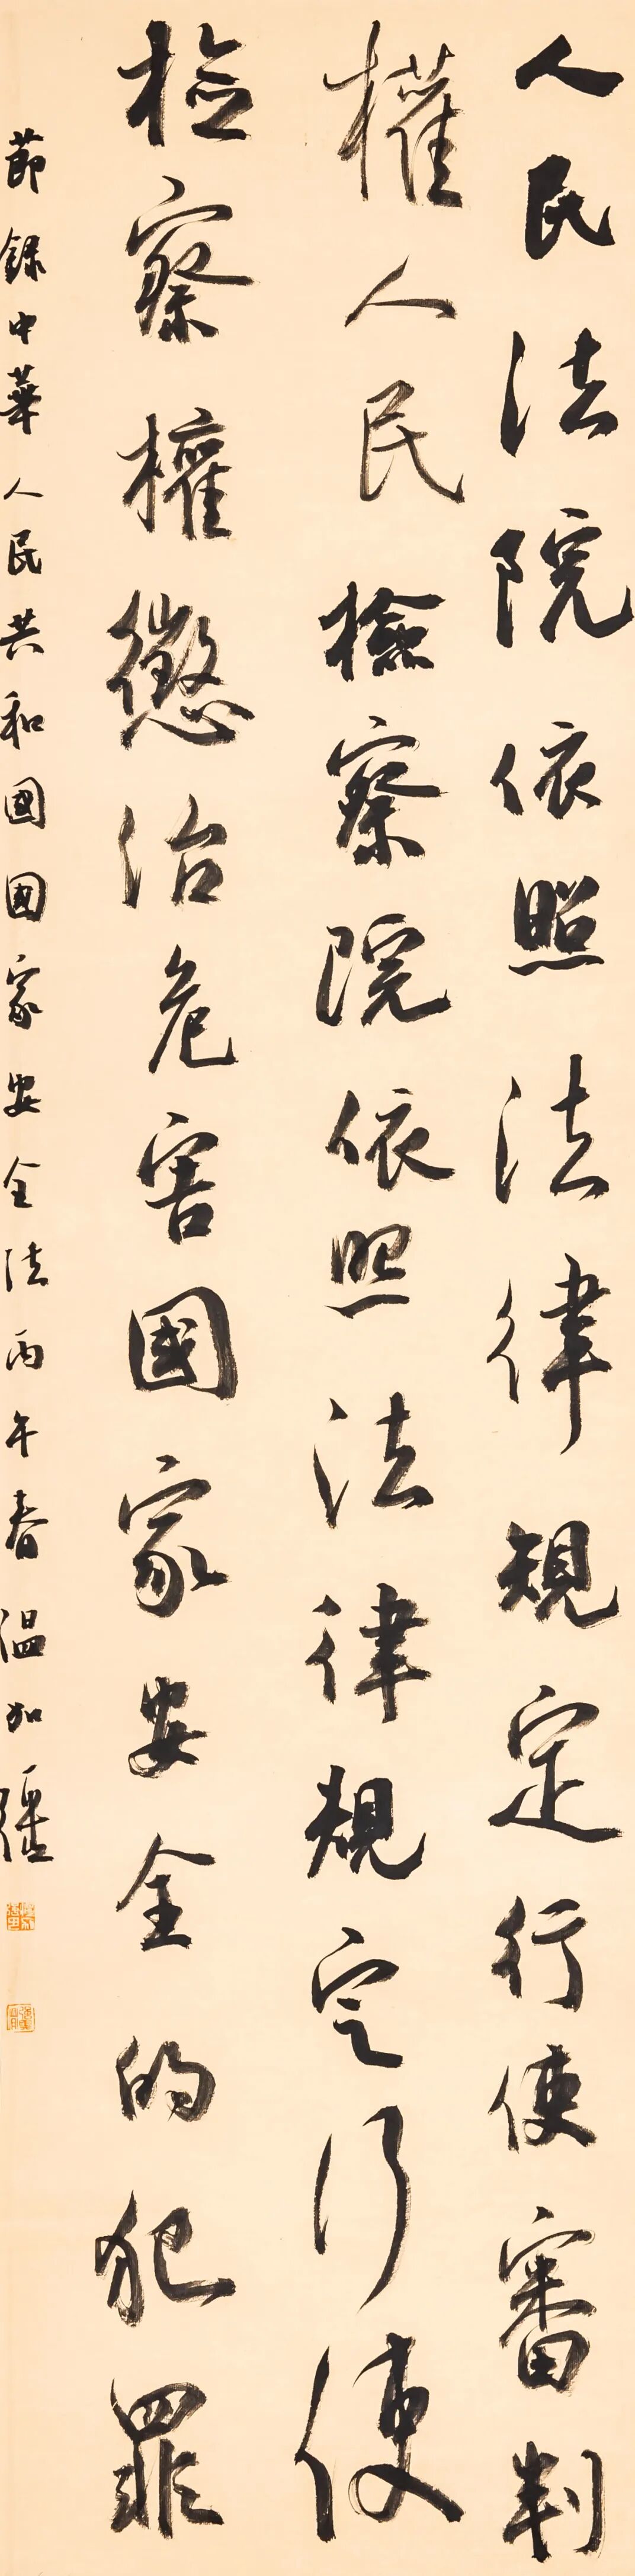 人民法院依照法律規定行使審判
權人民檢察院依照法律規定行使
檢察權懲治危害國家安全的犯罪
節錄中華人民共和國國家安全法丙午春溫加疆